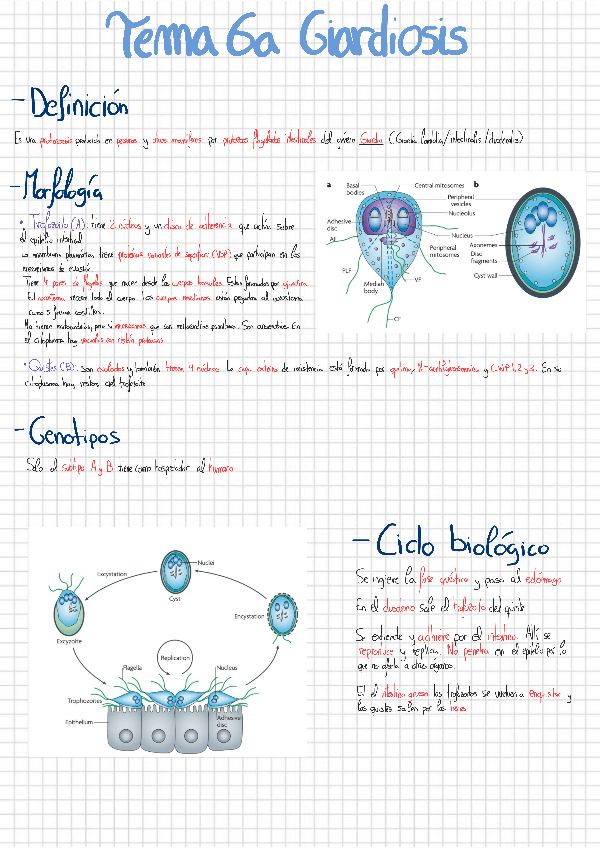 Tema 6a Giardiosis
- Definición
Es una protozoosis producida en personas y otros mamíferos por protozoos flagelados intestinales del género Giardia (Giardia lamblia/intestinalis/duodenalis)
- Morfología
• Trofozoito (A): tiene 2 núcleos y un disco de adherencia que actúa sobre
el epitelio intestinal
La membrana plasmática tiene proteínas variables de superficie (VSP) que participan en los
mecanismos de evasión
Tiene 4 pares de flagelos que nacen desde los cuerpos basales. Están formados por
El axonema recorre todo el cuerpo. Los cuerpos medianos están pegados al axostema
como forma
No tienen mitocondrias, pero si mitosomas que son Son
el citoplasma hay vacuolas con
• Quistes (B): Son ovalados y también tienen 4 núcleos. La capa externa de resistencia está formada por y CWP 1, 2 y 3. En su
citoplasma hay restos del trofozoito
a
Basal bodies
Central mitosomes
Peripheral vesicles
Nucleolus
Adhesive disc
Nucleus
AF
Peripheral mitosomes
PLF
Median body
VF
CF
b
Axonemes
Disc fragments
Cyst wall
- Genotipos
Sólo el subtipo A y B tiene como hospedador al humano
Excystation
Nuclei
Cyst
Encystation
Excyzoite
Replication
Flagella
Nucleus
Trophozoites
Epithelium
Adhesive disc
- Ciclo biológico
Se ingiere la fase quística y pasa al estómago
En el duodeno sale el trofozoito del quiste
Se extiende y adhiere por el intestino. Allí se
reproduce y replica. No penetra en el epitelio por lo
que no afecta a otros órganos.
El el intestino grueso los trofozoitos se vuelven a enquistar y
los quistes salen por las heces